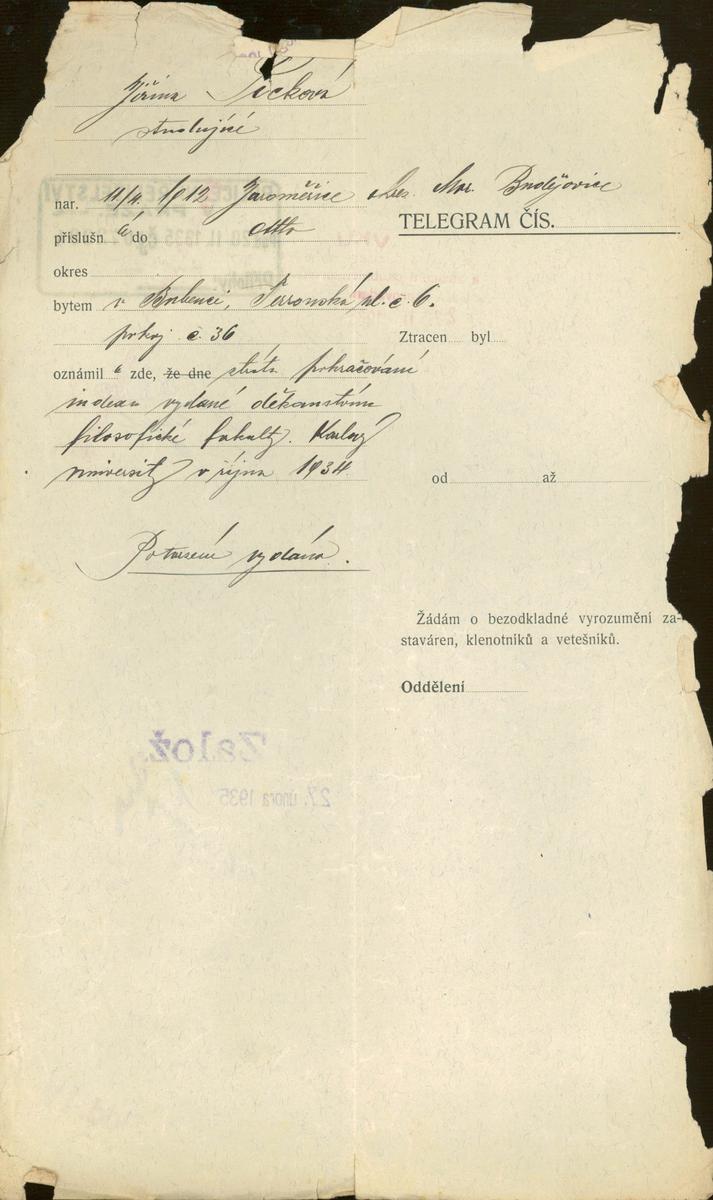 Jiřina Picková
studující
nar. 11/4. 1912 Jaroměřice okres. Mor. Budějovice
příslušn á do dtto
TELEGRAM ČÍS.
okres
bytem v Bubenči, Terronská ul. č. 6.
pokoj č. 36
Ztracen byl
oznámil a zde, že dne ztrátu pokračování
indexu vydané děkanstvím
filosofické fakulty. Karlovy
university v říjnu 1934.
od až
Potvrzení vydáno.
Žádám o bezodkladné vyrozumění za-
staváren, klenotníků a vetešníků.
Oddělení
Založ.
27. února 1935